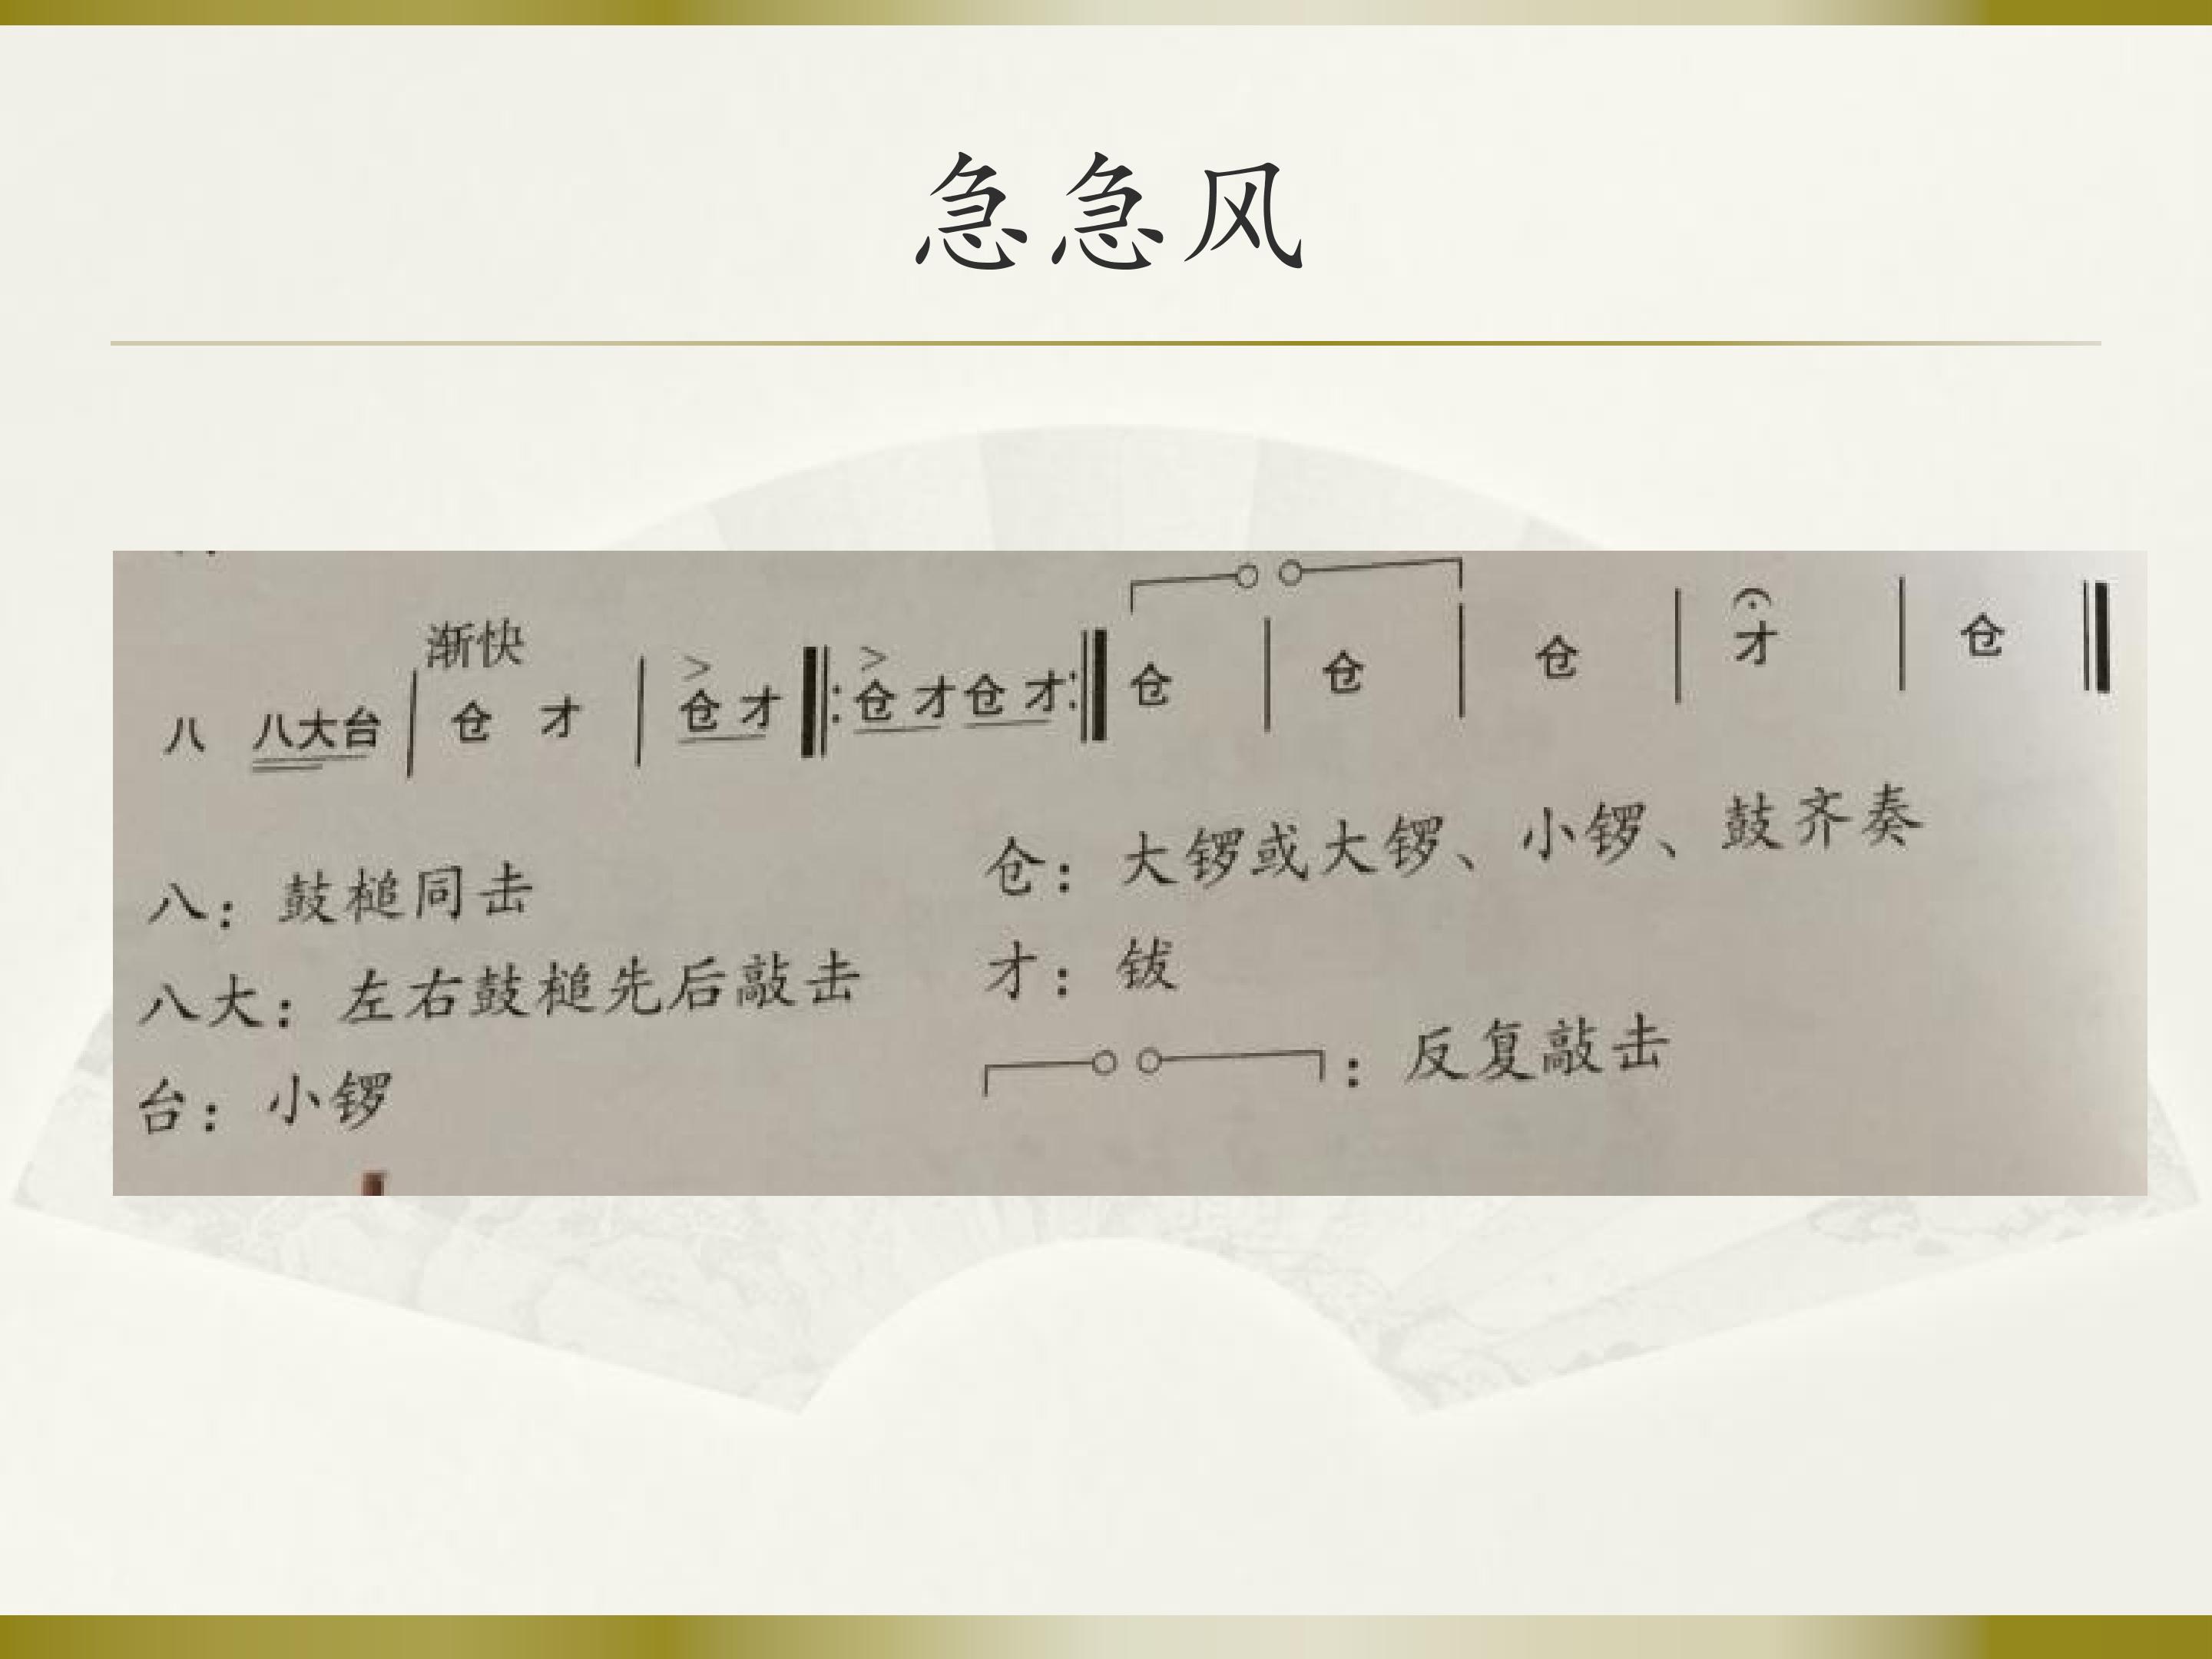 急急风
渐快
八 八大台 | 仓 才 | 仓 才 ‖: 仓 才 仓 才 :‖ 仓 | 仓 | 仓 | 才 | 仓 ‖
八：鼓槌同击
八大：左右鼓槌先后敲击
台：小锣
仓：大锣或大锣、小锣、鼓齐奏
才：钹
：反复敲击